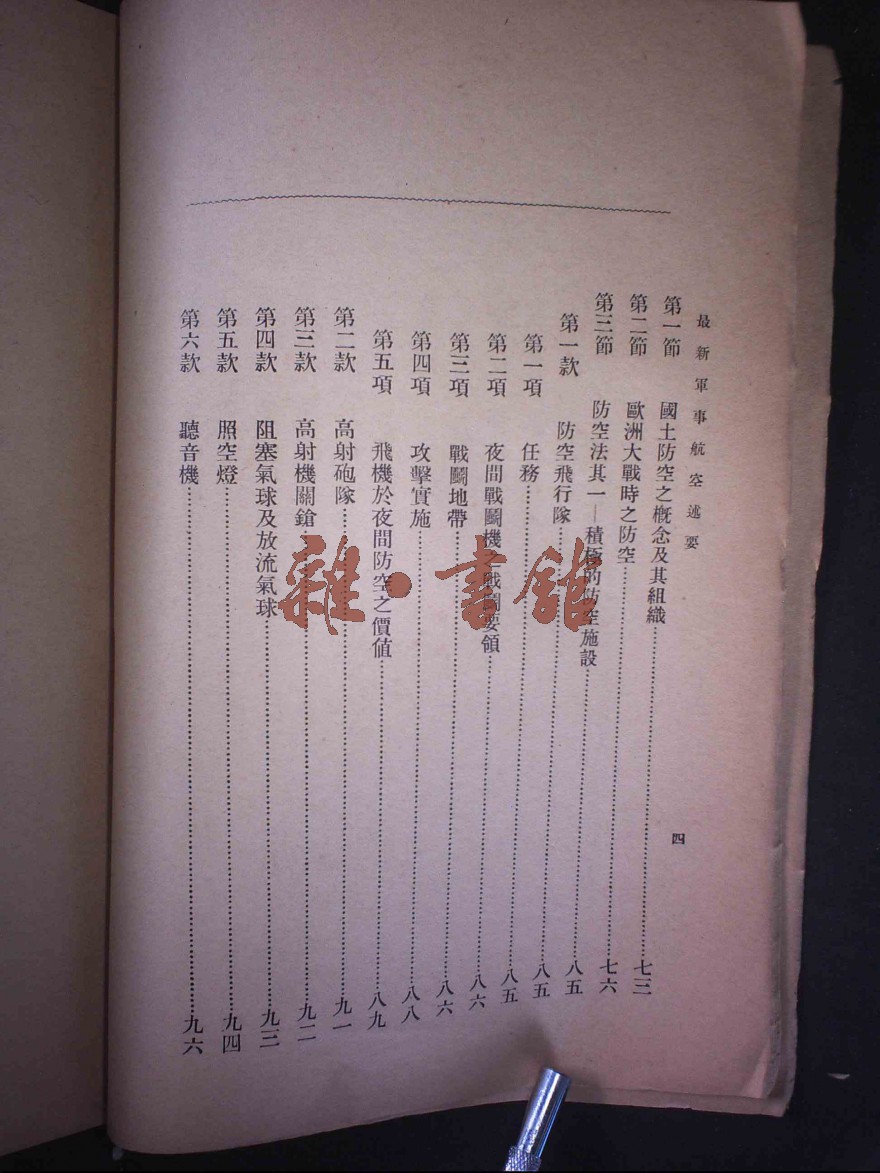 最新軍事航空述要
四
第一節 國土防空之概念及其組織……七三
第二節 歐洲大戰時之防空……七六
第三節 防空法其一—積極的防空施設……八五
第一款 防空飛行隊……八五
第一項 任務……八五
第二項 夜間戰鬭機之戰鬭要領……八六
第三項 戰鬭地帶……八六
第四項 攻擊實施……八八
第五項 飛機於夜間防空之價值……八九
第二款 高射砲隊……九一
第三款 高射機關鎗……九二
第四款 阻塞氣球及放流氣球……九三
第五款 照空燈……九四
第六款 聽音機……九六
雜·書館